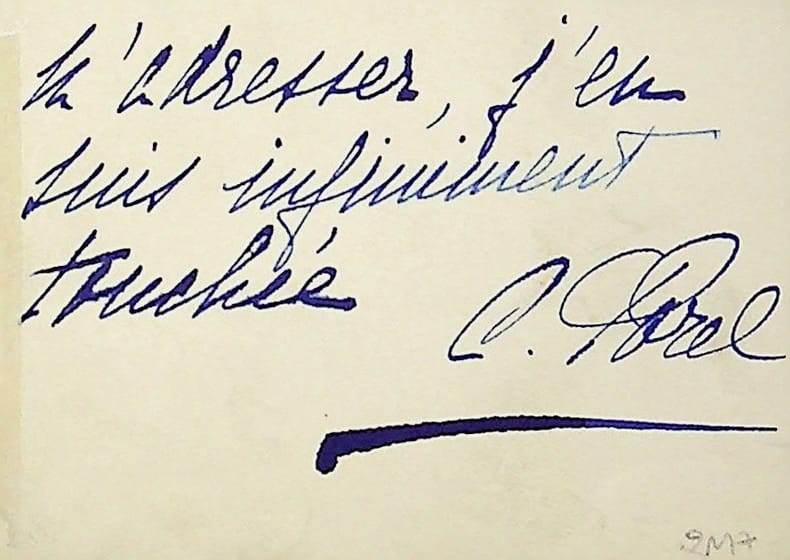 m'adresser, j'en
suis infiniment
touchée
C. Porel